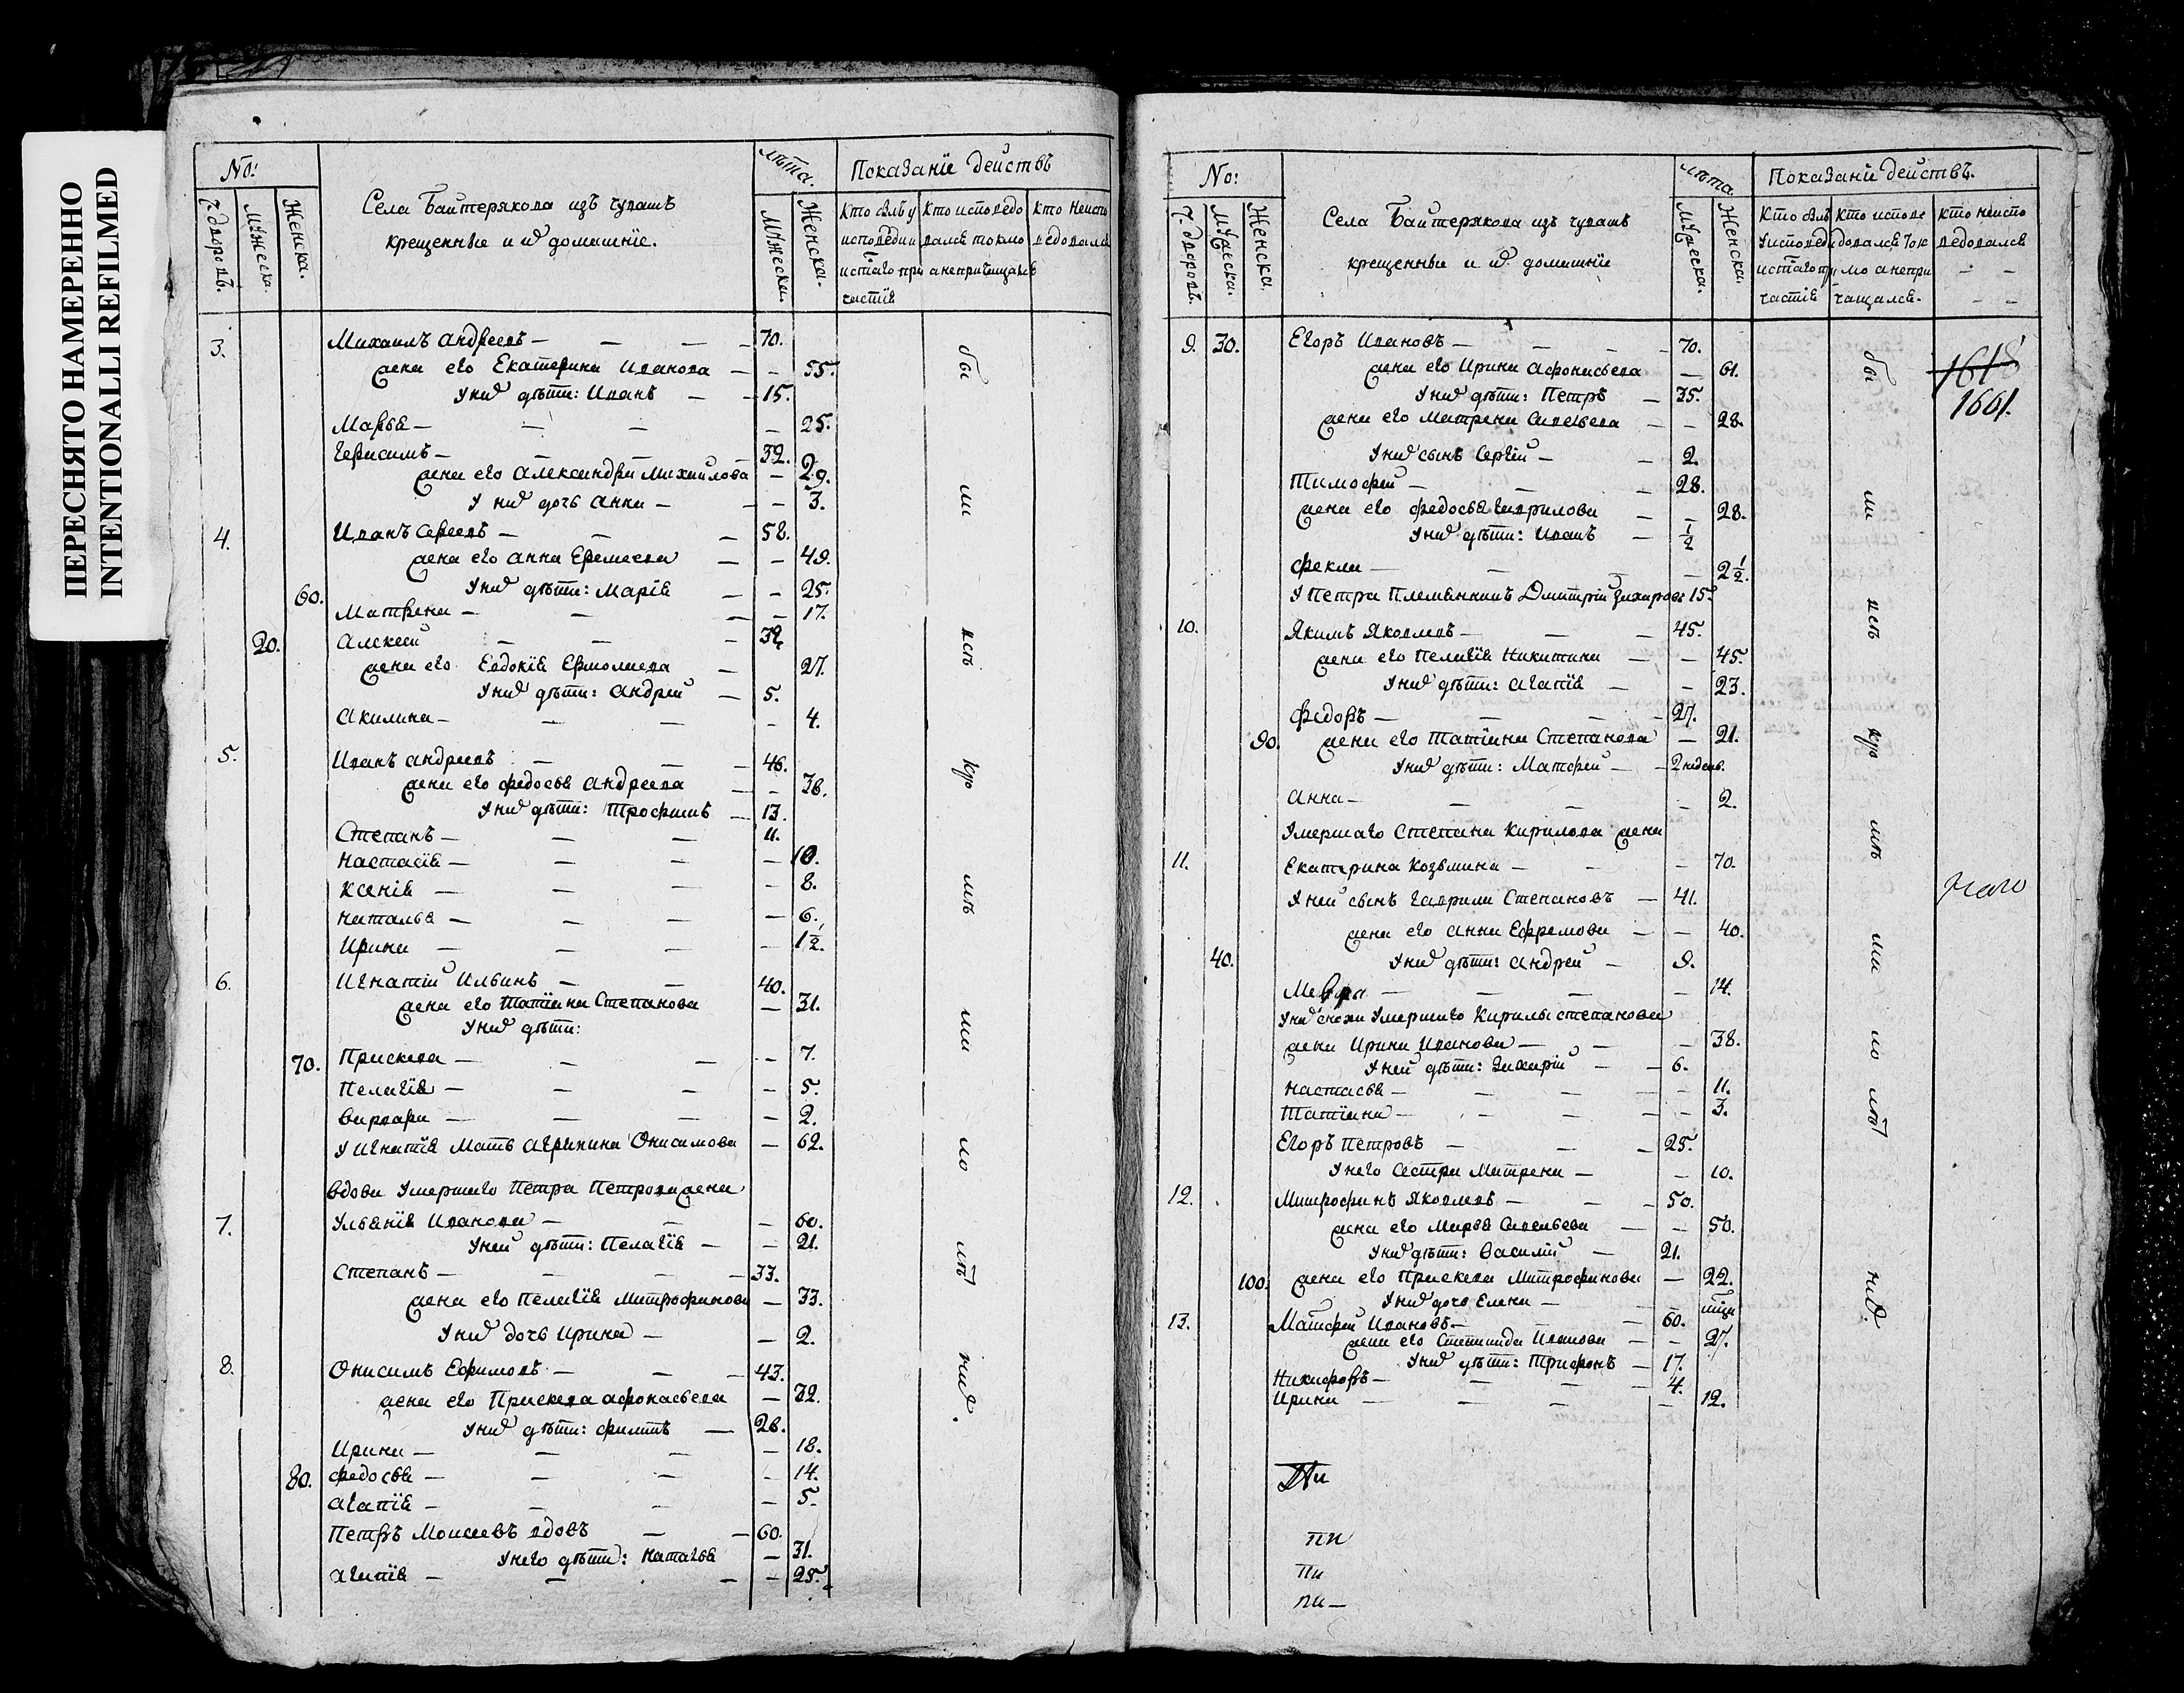 ПЕРЕСНЯТО НАМЕРЕННО
INTENTIONALLI REFILMED
No:
Села Баитерякова изъ чувашъ
крещенные и их домашнїе.
лѣта.
Показанїе действъ
Мужеска.
Женска.
Мужеска.
Женска.
Кто былъ у
исповеди и
с̃таго при
частїя
Кто исповедо
вался токмо
а непричащался
Кто неиспо
ведовался
3. Михаилъ Андреевъ — — — 70.
жена его Екатерина Иванова — — 55.
У них дѣти: Иванъ — — 15.
Марья — — — — 25.
Герасимъ — — — 32.
жена его Александра Михайлова — 29.
У них дочь Анна — — — 3.
4. Иванъ Сергеевъ — — — 58.
жена его Анна Еремеева — — 49.
У них дѣти: Марїя — — 25.
60. Матрена — — — — 17.
20. Алексей — — — 32
жена его Евдокїя Ермолаева — 27.
У них дѣти: Андрей — 5.
Акилина — — — — 4.
5. Иванъ Андреевъ — — — 46.
жена его Федосья Андреева — — 36.
У них дѣти: Трофимъ — 13.
Степанъ — — — 11.
Настасїя — — — — 10.
Ксенїя — — — — 8.
Наталья — — — — 6.
Ирина — — — — 1½.
6. Игнатїй Ильинъ — — 40.
жена его Татїана Степанова — 31.
У них дѣти:
70. Прискева — — — — 7.
Пелагїя — — — — 5.
Варвара — — — — 2.
У Игнатїя Мать Агрипина Онисимова — 62.
Вдова Умершаго Петра Петрова жена
7. Ульянїя Иванова — — — 60.
У ней дѣти: Пелагїя — — 21.
Степанъ — — — — 33.
жена его Пелагїя Митрофанова — 33.
У них дочь Ирина — — 2.
8. Онисимъ Ефимовъ — — — 43.
жена его Прискева Афонасьева — 32.
У них дѣти: Филипъ — 26.
Ирина — — — — 18.
80. Федосья — — — — 14.
Агапїя — — — — 5.
Петръ Моисеевъ вдовъ — — 60.
У него дѣти: Наталья — 31.
Агапїя — — — — 25.
бы
ли
всѣ
кро
мѣ
ма
ло
лѣт
них.
No:
Села Баитерякова изъ чувашъ
крещенные и их домашнїе
лѣта
Показанїе действъ.
Мужеска.
Женска.
Мужеска.
Женска.
Кто былъ
у исповеди
и с̃таго при
частїя
Кто испове
довался ток
мо а непри
чащался.
Кто неиспо
ведовался
— —
— —
9. 30. Егоръ Ивановъ — — — 70.
жена его Ирина Афонасьева — 61.
У них дѣти: Петръ — 35.
жена его Матрена Савельева — — 28.
У них сынъ Сергїй — — 2.
Тимофей — — — 28.
жена его Федосья Гаврилова — — 28.
У них дѣти: Иванъ — ½
Фекла — — — — 2½.
У Петра Племянникъ Дмитрїй Захаровъ 15.
10. Якимъ Яковлевъ — — — 45.
жена его Пелагїя Никитина — — 45.
У них дѣти: Агапїя — — 23.
Федоръ — — — — 27.
90. жена его Татїана Степанова — 21.
У них дѣти: Матфей — — 2 недель.
Анна — — — — 2.
Умершаго Степана Кирилова жена
11. Екатерина Козьмина — — 70.
У ней сынъ Гаврила Степановъ — 41.
жена его Анна Ефремова — — 40.
40. У них дѣти: Андрей — 9.
Мавра — — — — 14.
У них сноха Умершаго Кирилы Степанова
жена Ирина Иванова — — — 38.
У ней дѣти: Захарїй — — 6.
Настасья — — — — 11.
Татїана — — — — 3.
Егоръ Петровъ — — — 25.
У него Сестра Матрена — — 10.
12. Митрофанъ Яковлевъ — — — 50.
жена его Марья Савельева — — 50.
У них дѣти: Василїй — 21.
100. жена его Прискева Митрофанова — 22.
У них дочь Елена —
13. Матфей Ивановъ — — — 60.
жена его Степанида Иванова — — 27.
У них дѣти: Трифонъ — 17.
Никифоръ — — — — 4.
Ирина — — — — 12.
бы
ли
всѣ
кро
мѣ
ма
ло
лѣт
них.
1618
1661.
пи
пи
пи —